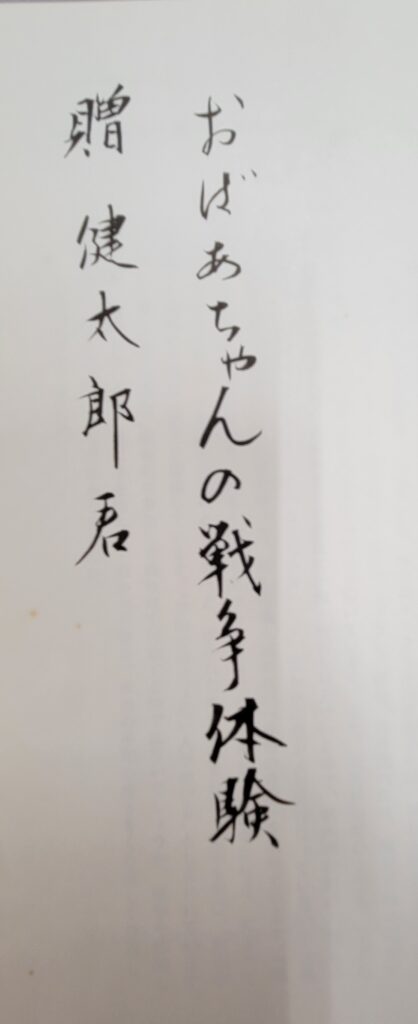 おばあちゃんの戦争体験
贈 健太郎君